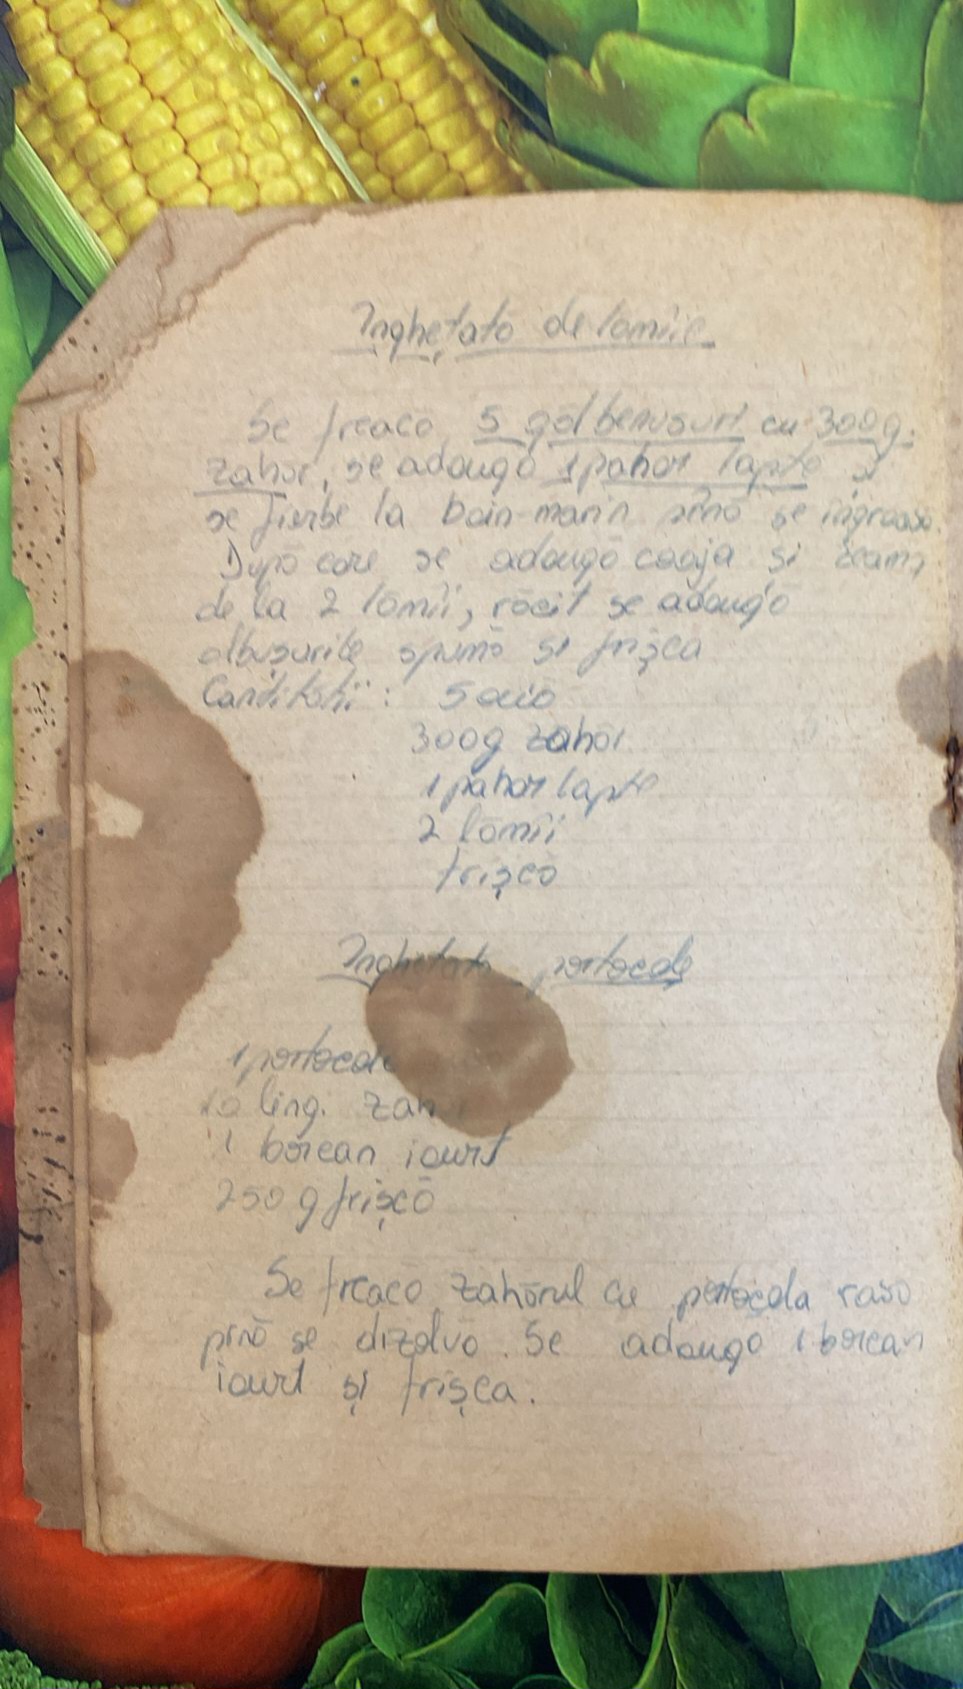 Înghețată de lămîie
Se freacă 5 gălbenușuri cu 300g.
zahăr, se adaugă 1 pahar lapte și
se fierbe la bain-marin pînă se îngroașă.
După care se adaugă coaja și zeama
de la 2 lămîi, răcit se adaugă
albușurile spumă și frișca
Cantități: 5 ouă
300g zahăr
1 pahar lapte
2 lămîi
frișcă
Înghețată portocale
1 portocală
10 ling. zahăr
1 borcan iaurt
250 g frișcă
Se freacă zahărul cu portocala rasă
pînă se dizolvă. Se adaugă 1 borcan
iaurt și frișca.